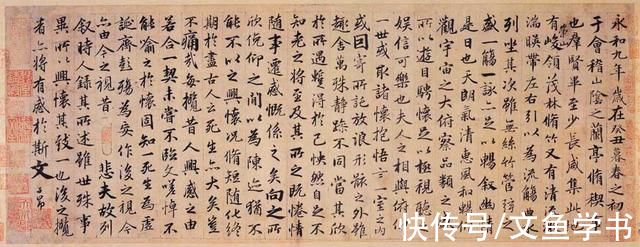 永和九年歲在癸丑暮春之初會
于會稽山陰之蘭亭脩禊事
也羣賢畢至少長咸集此地
有崇山峻領茂林脩竹又有清流激
湍暎帶左右引以為流觴曲水
列坐其次雖無絲竹管弦之
盛一觴一詠亦足以暢叙幽情
是日也天朗氣清惠風和暢仰
觀宇宙之大俯察品類之盛
所以遊目騁懷足以極視聽之
娛信可樂也夫人之相與俯仰
一世或取諸懷抱悟言一室之内
或因寄所託放浪形骸之外雖
趣舍萬殊靜躁不同當其欣
於所遇暫得於己怏然自足不
知老之將至及其所之既惓情
隨事遷感慨係之矣向之所
欣俛仰之間以為陳迹猶不
能不以之興懷況脩短隨化終
期於盡古人云死生亦大矣豈
不痛哉每攬昔人興感之由
若合一契未嘗不臨文嗟悼不
能喻之於懷固知一死生為虛
誕齊彭殤為妄作後之視今
亦由今之視昔 悲夫故列
叙時人録其所述雖世殊事
異所以興懷其致一也後之攬
者亦將有感於斯文
子昂
快传号/文鱼学书